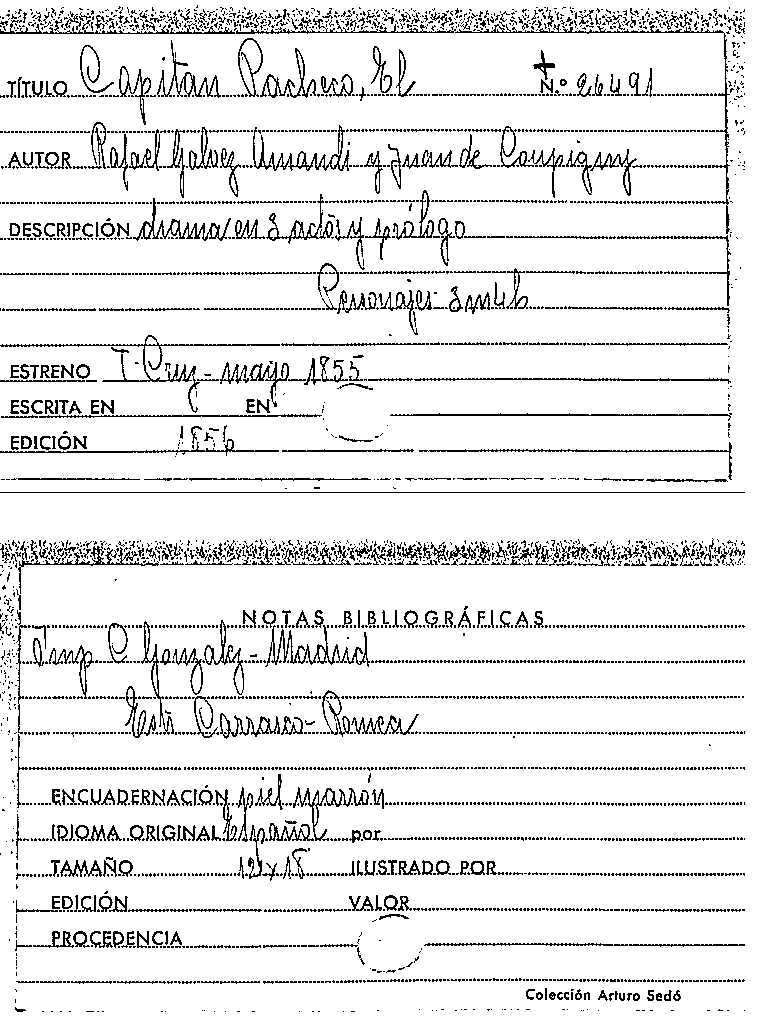 TÍTULO Capitan Pacheco, El N.º 26491
AUTOR Rafael Galvez Amandi y Juan de Coupigny
DESCRIPCIÓN drama en 3 actos y prólogo
Personajes 3m4h
ESTRENO T. Cruz - mayo 1855
ESCRITA EN EN
EDICIÓN 1856
NOTAS BIBLIOGRÁFICAS
Imp C. Gonzalez - Madrid
Estr Carrasco - Romea
ENCUADERNACIÓN piel marrón
IDIOMA ORIGINAL Español por
TAMAÑO 12 x 18 ILUSTRADO POR
EDICIÓN VALOR
PROCEDENCIA
Colección Arturo Sedó